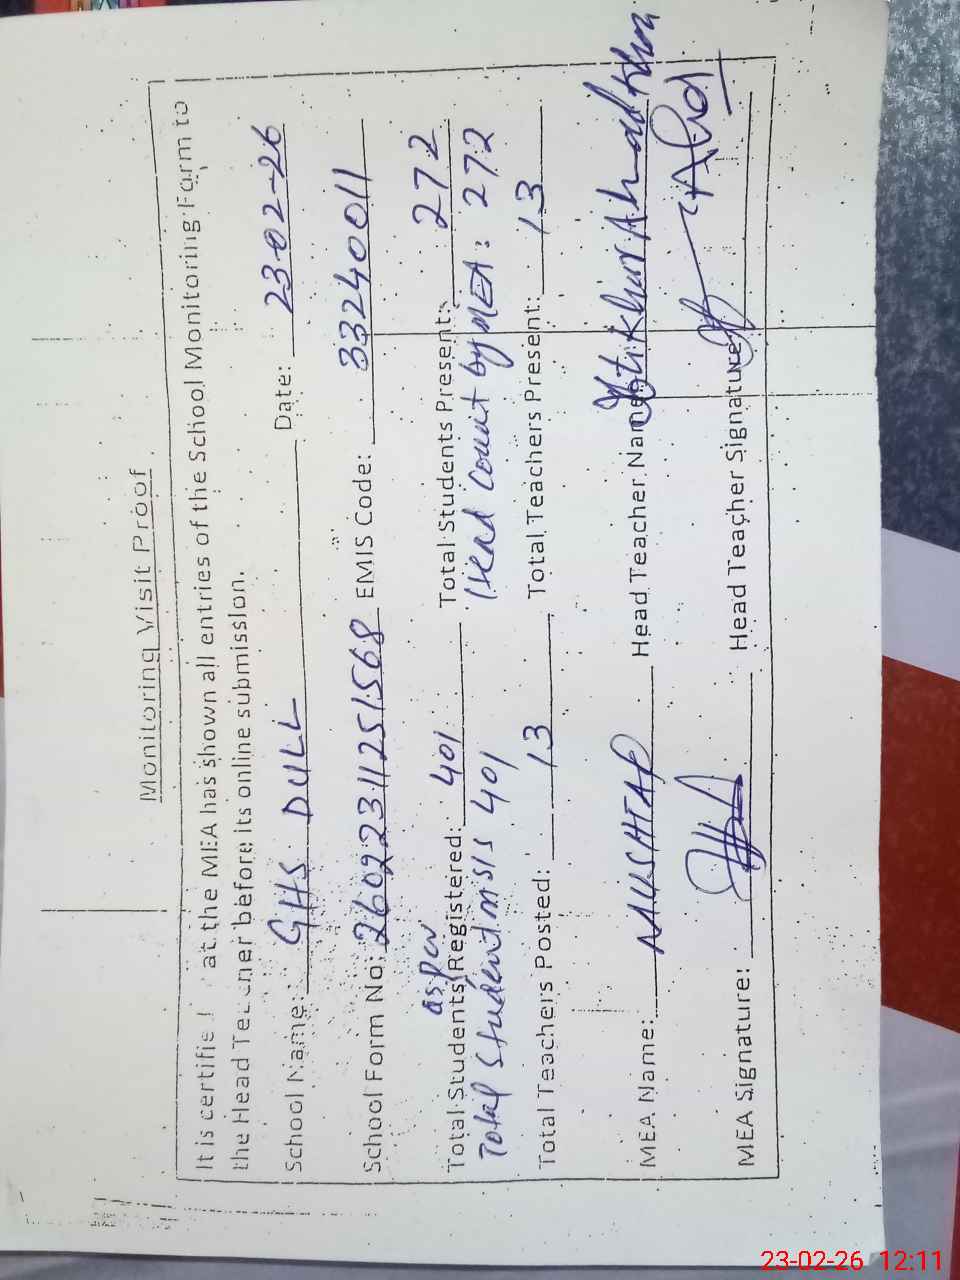 Monitoring Visit Proof
It is certifie at the MEA has shown all entries of the School Monitoring Form to
the Head Teacher before its online submission.
School Name: GHS DULL Date: 23-02-26
School Form No: 260223112515 68 EMIS Code: 33240011
as per
Total Students Registered: 401 Total Students Present: 272
Total Student MSIS 401 (Head Count by MEA: 272
Total Teachers Posted: 13 Total Teachers Present: 13
MEA Name: MUSHTAQ Head Teacher Name: Iftikhar Ahmad Khan
MEA Signature: Head Teacher Signature:
23-02-26 12:11